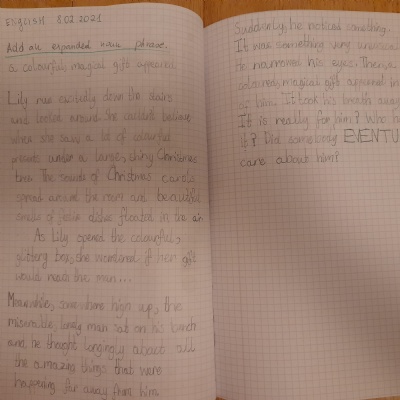 ENGLISH 8.02.2021
Add an expanded noun phrase.
a colourful, magical gift appeared
Lily ran excitedly down the stairs
and looked around. She couldn't believe
when she saw a lot of colourful
presents under a large, shiny Christmas
tree. The sounds of Christmas carols
spread around the room and beautiful
smells of dishes floated in the air.
As Lily opened the colourful,
glittery box, she wondered if her gift
would reach the man...
Meanwhile, somewhere high up, the
miserable, lonely man sat on his bench
and he thought longingly about all
the amazing things that were
happening far away from him.
Suddenly, he noticed something.
It was something very unusual
He narrowed his eyes. Then, a
coloured, magical gift appeared in
of him. It took his breath away
It is really for him? Who
it? Did somebody EVENTU
care about him?